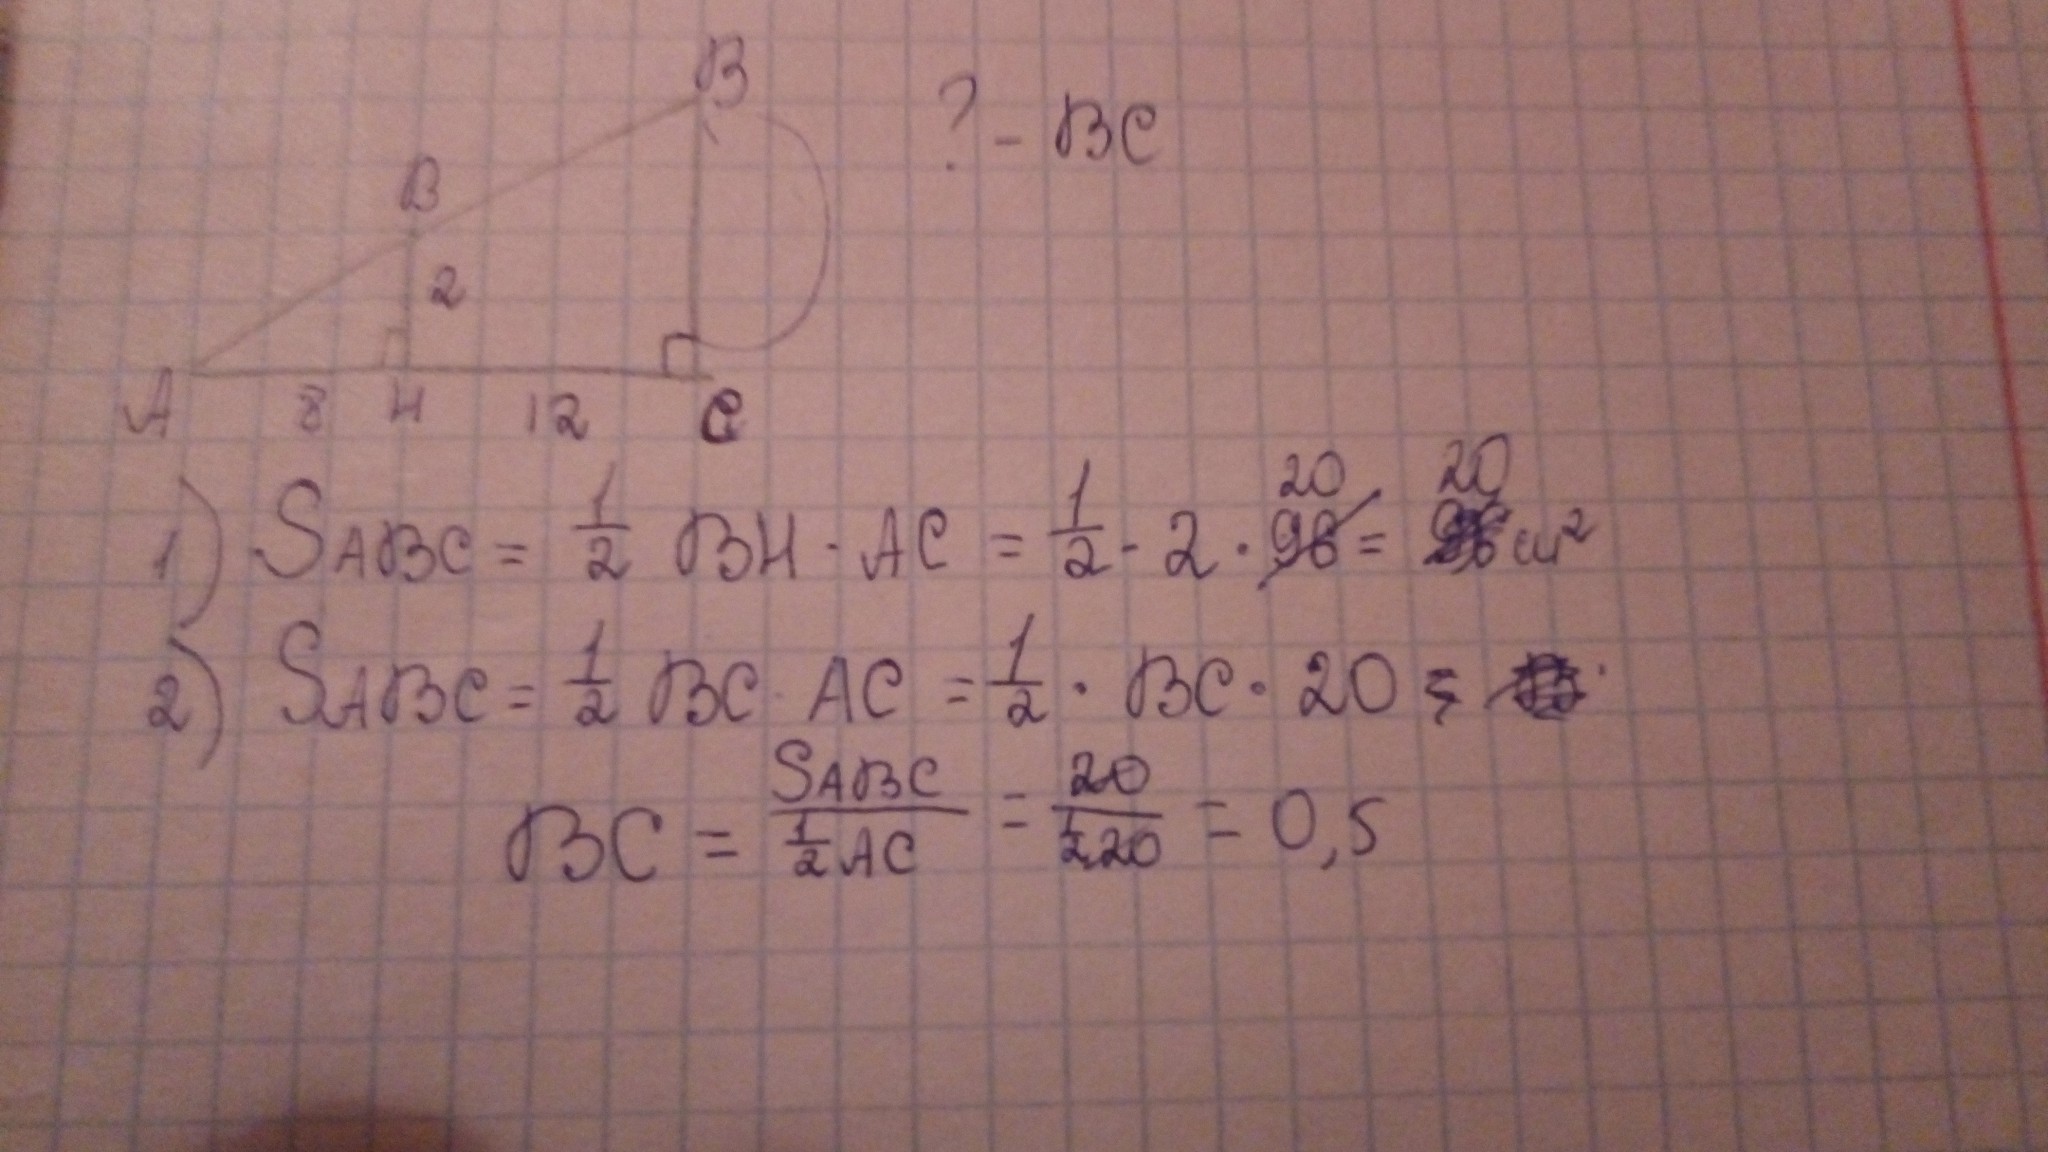 B
? - BC
B
2
A 8 H 12 C
1) SABC = 1/2 BH · AC = 1/2 · 2 · 96 20 = 20 см²
2) SABC = 1/2 BC · AC = 1/2 · BC · 20 =
BC = SABC / 1/2 AC = 20 / 1/2 20 = 0,5